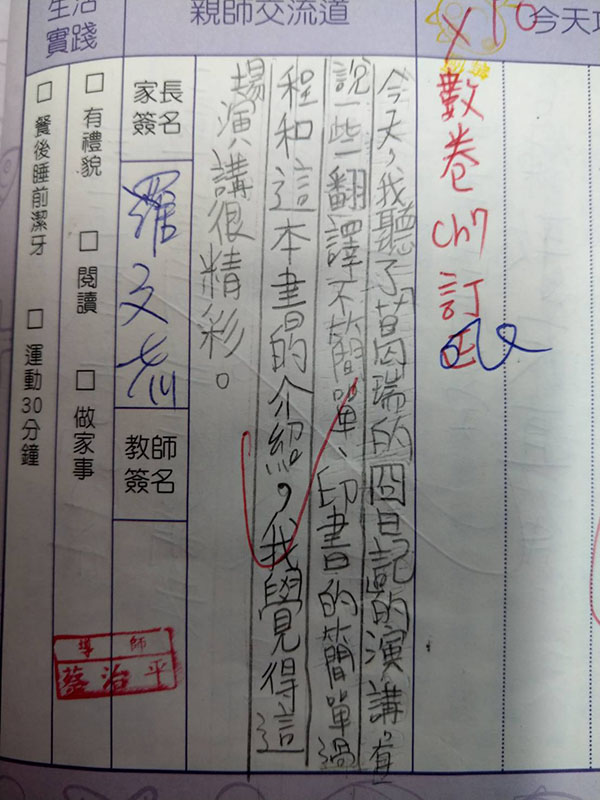 今天
數卷ch7訂正
親師交流道
今天,我聽了苗因瑞的囧日記的演講,有
說一些翻譯不簡單、印書的簡單過
程和這本書的介紹,我覺得這
場演講很精彩。
家長簽名
教師簽名
導師
蔡治平
生活實踐
□ 有禮貌 □ 閱讀 □ 做家事
□ 餐後睡前潔牙 □ 運動30分鐘